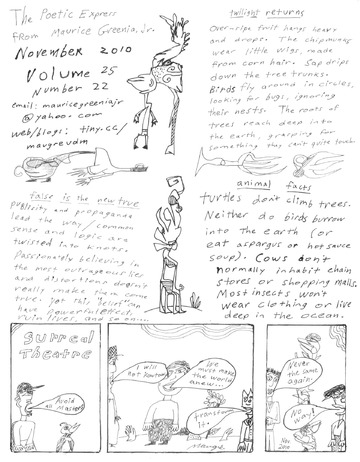 The Poetic Express
from Maurice Greenia, Jr.
November 2010
Volume 25
Number 22
email: mauricegreeniajr
@yahoo.com
web/blogs: tiny.cc/
maugreudm
twilight returns
Over-ripe fruit hangs heavy
and droops. The chipmunks
wear little wigs, made
from corn hair. Sap drips
down the tree trunks.
Birds fly around in circles,
looking for bugs, ignoring
their nests. The roots of
trees reach deep into
the earth, grasping for
something they can't quite touch.
false is the new true
Publicity and propaganda
lead the way/common
sense and logic are
twisted into knots.
Passionately believing in
the most outrageous lies
and distortions doesn't
really make them come
true. Yet this
have powerful effects,
ruin lives, and so on...
animal facts
turtles don't climb trees.
Neither do birds burrow
into the earth (or
eat aspargus or hot sauce
soup). Cows don't
normally inhabit chain
stores or shopping malls.
Most insects won't
wear clothing or live
deep in the ocean.
Surreal
Theatre
Avoid
all Masters
I will
not
I've must make
the world
anew...
transform
it.
Maugre
Never
the same
again.
No way!
Nov
2010